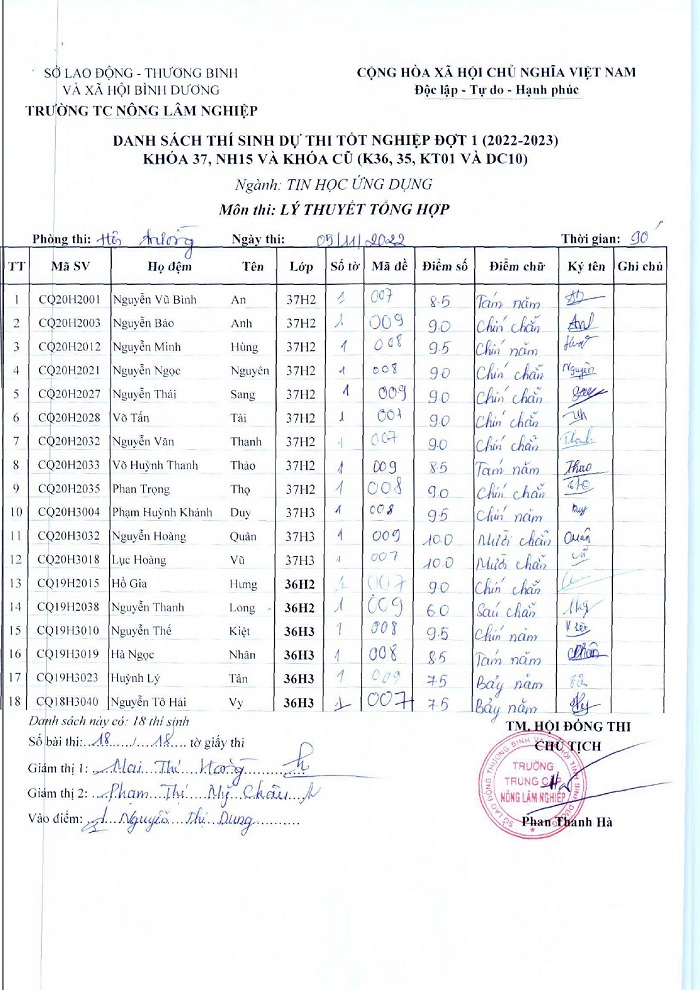 SỞ LAO ĐỘNG - THƯƠNG BINH
VÀ XÃ HỘI BÌNH DƯƠNG
TRƯỜNG TC NÔNG LÂM NGHIỆP
CỘNG HÒA XÃ HỘI CHỦ NGHĨA VIỆT NAM
Độc lập - Tự do - Hạnh phúc
DANH SÁCH THÍ SINH DỰ THI TỐT NGHIỆP ĐỢT 1 (2022-2023)
KHÓA 37, NH15 VÀ KHÓA CŨ (K36, 35, KT01 VÀ DC10)
Ngành: TIN HỌC ỨNG DỤNG
Môn thi: LÝ THUYẾT TỔNG HỢP
Phòng thi: Hội trường Ngày thi: 05/11/2022 Thời gian: 90'
TT Mã SV Họ đệm Tên Lớp Số tờ Mã đề Điểm số Điểm chữ Ký tên Ghi chú
1 CQ20H2001 Nguyễn Vũ Bình An 37H2 1 007 8.5 Tám năm
2 CQ20H2003 Nguyễn Bảo Anh 37H2 1 009 9.0 Chín chẵn Anh
3 CQ20H2012 Nguyễn Minh Hùng 37H2 1 008 9.5 Chín năm
4 CQ20H2021 Nguyễn Ngọc Nguyên 37H2 1 008 9.0 Chín chẵn Nguyên
5 CQ20H2027 Nguyễn Thái Sang 37H2 1 009 9.0 Chín chẵn
6 CQ20H2028 Võ Tấn Tài 37H2 1 007 9.0 Chín chẵn
7 CQ20H2032 Nguyễn Văn Thanh 37H2 1 007 9.0 Chín chẵn Thanh
8 CQ20H2033 Võ Huỳnh Thanh Thảo 37H2 1 009 8.5 Tám năm Thao
9 CQ20H2035 Phan Trọng Thọ 37H2 1 008 9.0 Chín chẵn Thọ
10 CQ20H3004 Phạm Huỳnh Khánh Duy 37H3 1 008 9.5 Chín năm Duy
11 CQ20H3032 Nguyễn Hoàng Quân 37H3 1 009 10.0 Mười chẵn Quân
12 CQ20H3018 Lục Hoàng Vũ 37H3 1 007 10.0 Mười chẵn Vũ
13 CQ19H2015 Hồ Gia Hưng 36H2 1 007 9.0 Chín chẵn
14 CQ19H2038 Nguyễn Thanh Long 36H2 1 009 6.0 Sáu chẵn
15 CQ19H3010 Nguyễn Thế Kiệt 36H3 1 008 9.5 Chín năm
16 CQ19H3019 Hà Ngọc Nhân 36H3 1 008 8.5 Tám năm Nhân
17 CQ19H3023 Huỳnh Lý Tân 36H3 1 009 7.5 Bảy năm
18 CQ18H3040 Nguyễn Tô Hải Vy 36H3 1 007 7.5 Bảy năm
Danh sách này có: 18 thí sinh
Số bài thi: 18 / 18 tờ giấy thi
Giám thị 1: Mai Thị Hường
Giám thị 2: Phạm Thị Mỹ Châu
Vào điểm: Nguyễn Thị Dung
TM. HỘI ĐỒNG THI
CHỦ TỊCH
TRƯỜNG
TRUNG CẤP
NÔNG LÂM NGHIỆP
Phan Thanh Hà